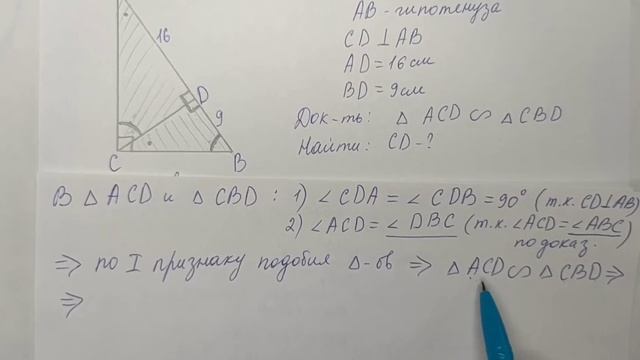 AB - гипотенуза
16
CD ⊥ AB
AD = 16 см
D
BD = 9 см
9
Док-ть: △ ACD ∽ △ CBD
C
B
Найти: CD - ?
В △ ACD и △ CBD : 1) ∠ CDA = ∠ CDB = 90° (т.к. CD⊥AB)
2) ∠ACD = ∠ DBC (т.к. ∠ACD = ∠ABC)
по доказ.
⇒ по I признаку подобия △-ов ⇒ △ ACD ∽ △ CBD ⇒
⇒